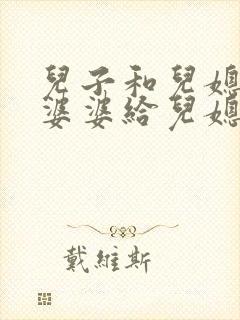 兒子和兒媳
婆婆給兒媳
戴維斯